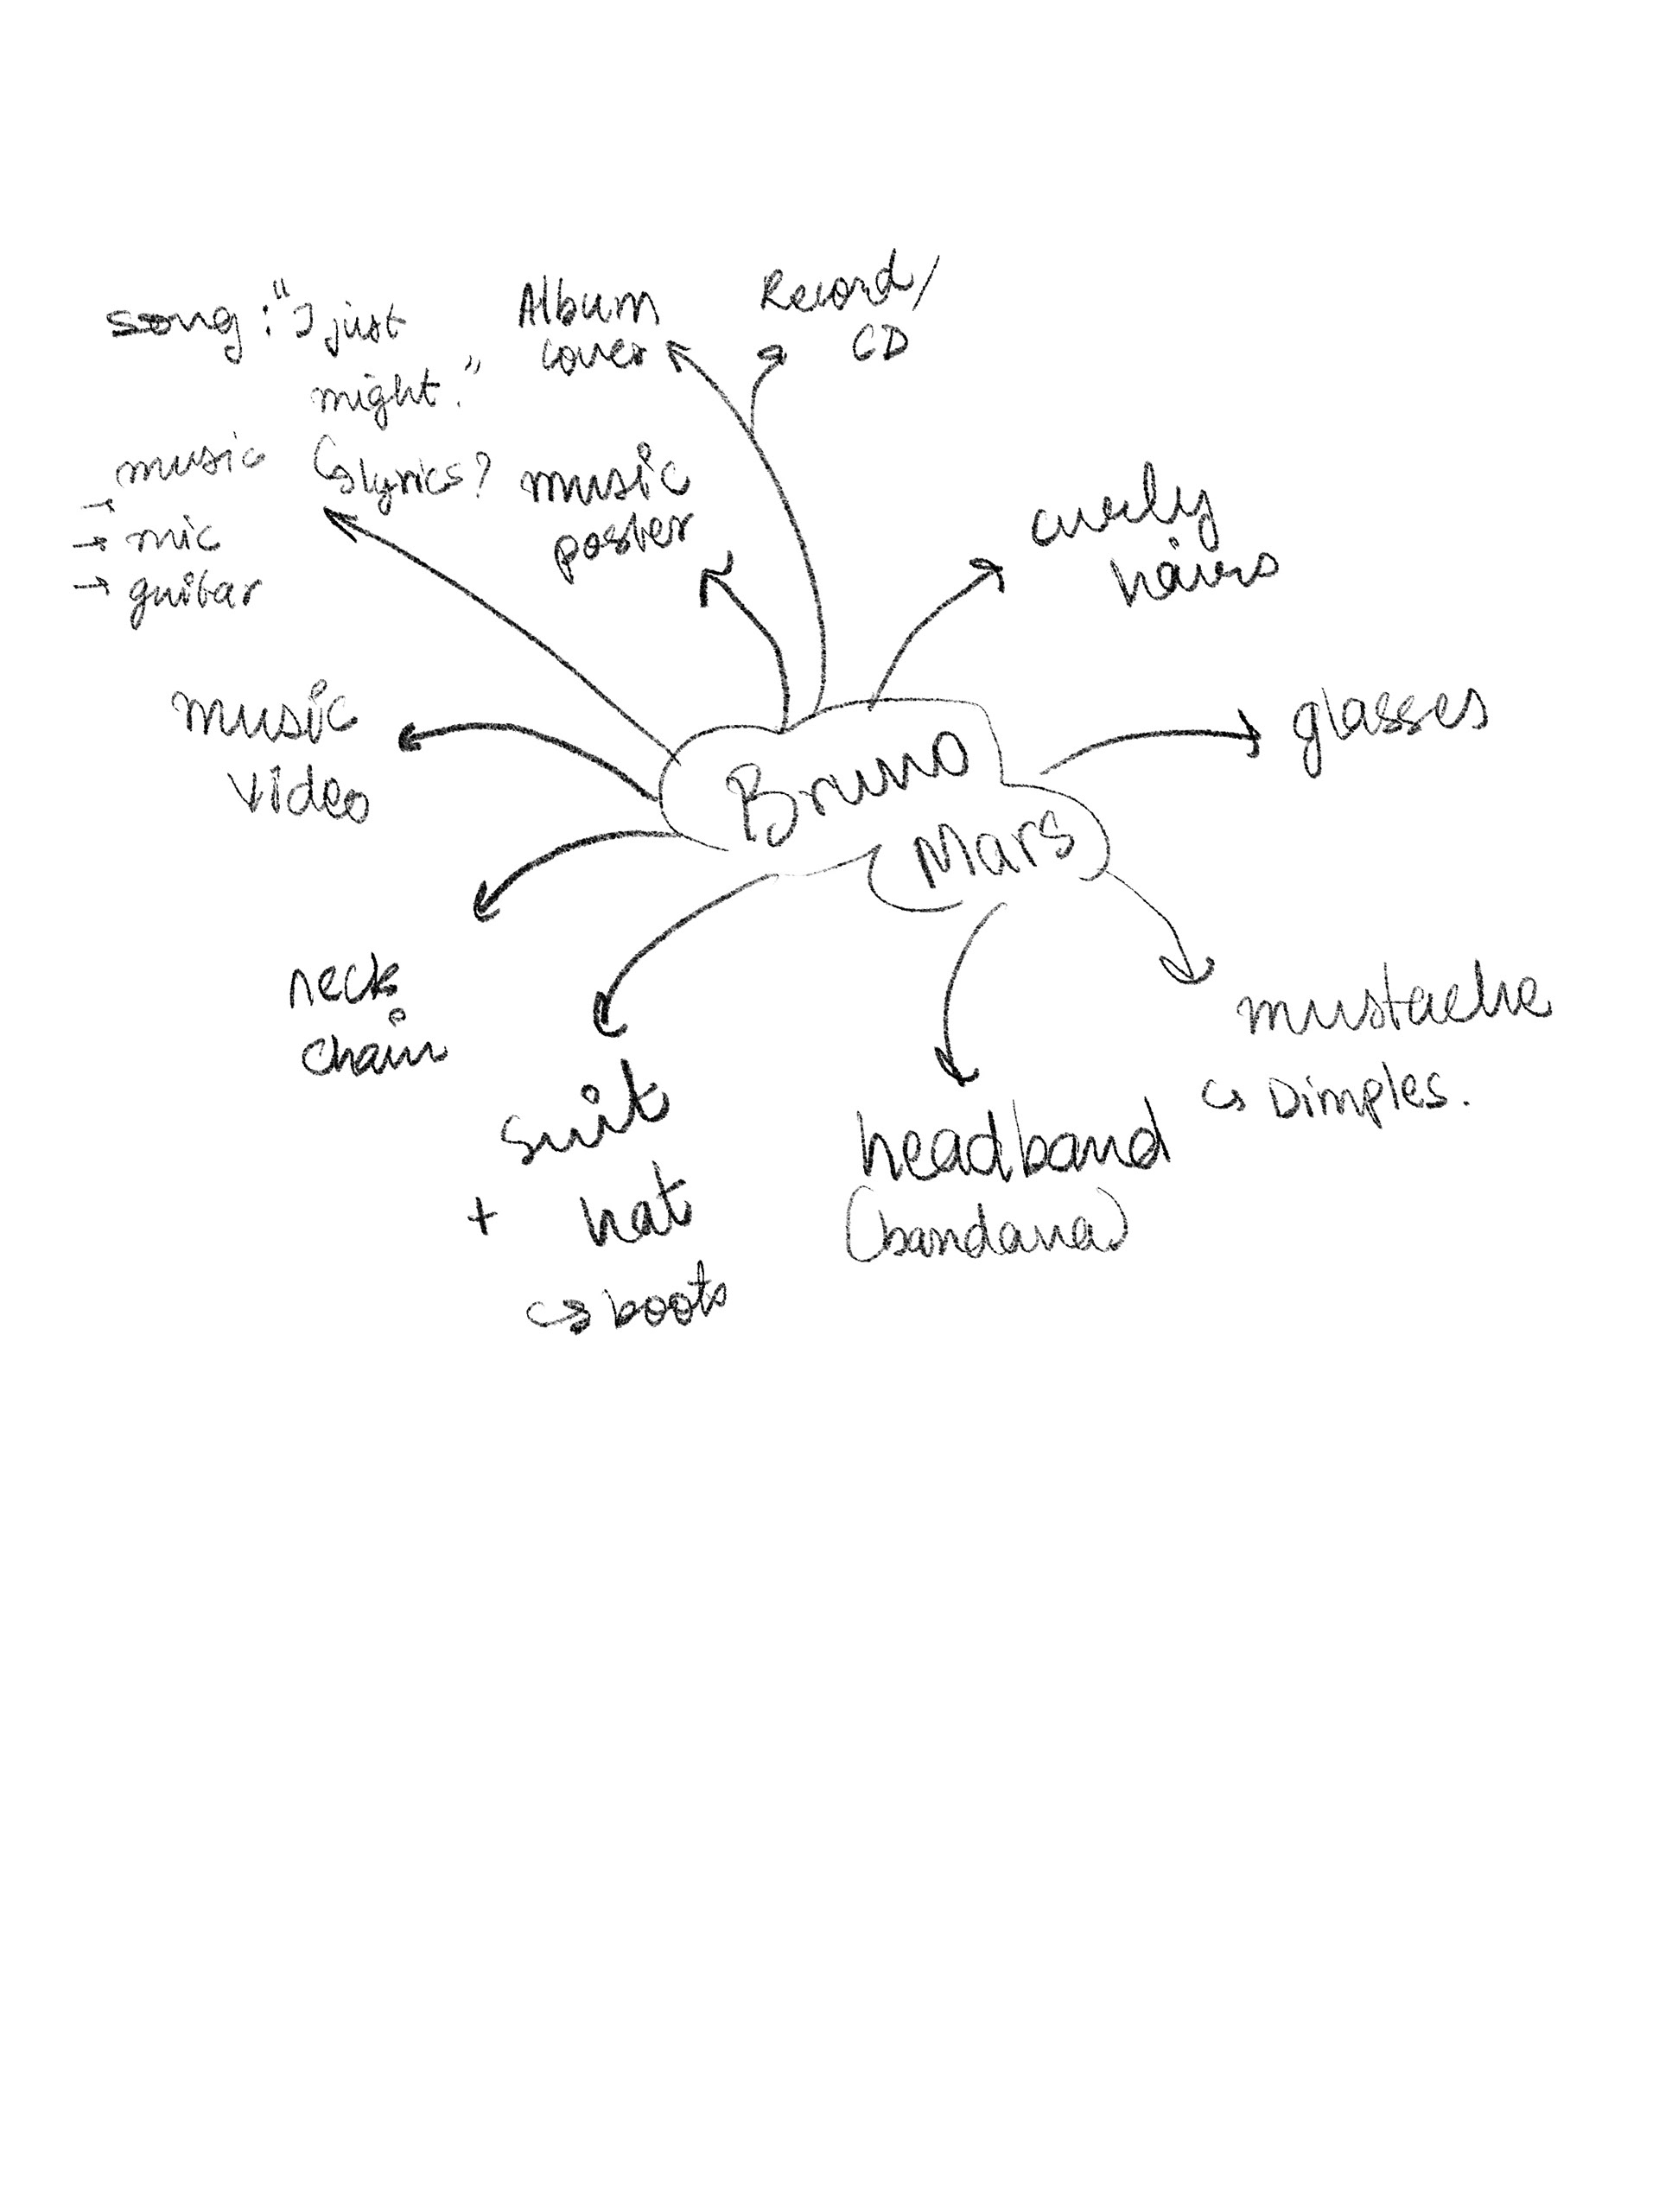 song: "I just
might."
↳ lyrics?
music
→
→ mic
→ guitar
Album
cover
Record/
CD
music
poster
curly
hairs
glasses
music
video
Bruno
Mars
neck
chain
suit
+ hat
↳ boots
headband
(bandana)
mustache
↳ Dimples.